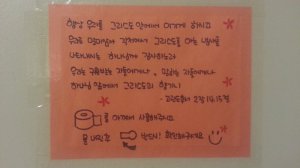 항상 우리를 그리스도 안에서 이기게 하시고
우리로 말미암아 각처에서 그리스도를 아는 냄새를
나타내시는 하나님께 감사하노라
우리는 구원받는 자들에게나 망하는 자들에게나
하나님 앞에서 그리스도의 향기니
고린도후서 2장 14, 15절
를 아껴서 사용해주시고
물 내린 후 반드시 확인해주세요